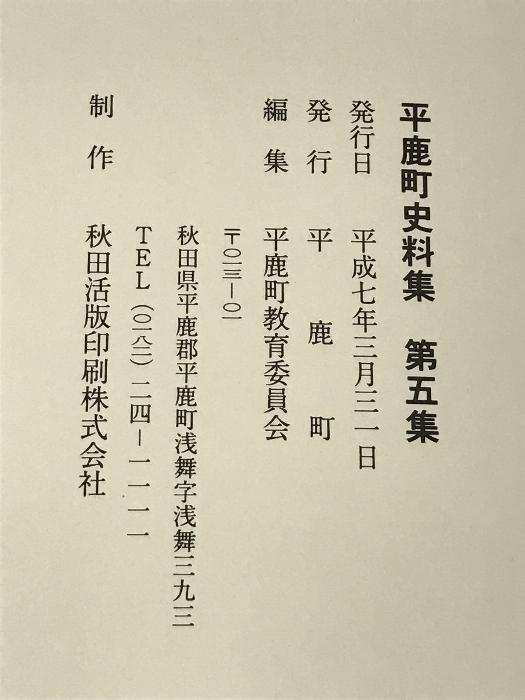 平鹿町史料集　第五集
発行日　平成七年三月三一日
発行　平鹿町
編集　平鹿町教育委員会
〒〇一三ー〇一
秋田県平鹿郡平鹿町浅舞字浅舞三九三
TEL（〇一八二）二四ー一一一一
制作　秋田活版印刷株式会社